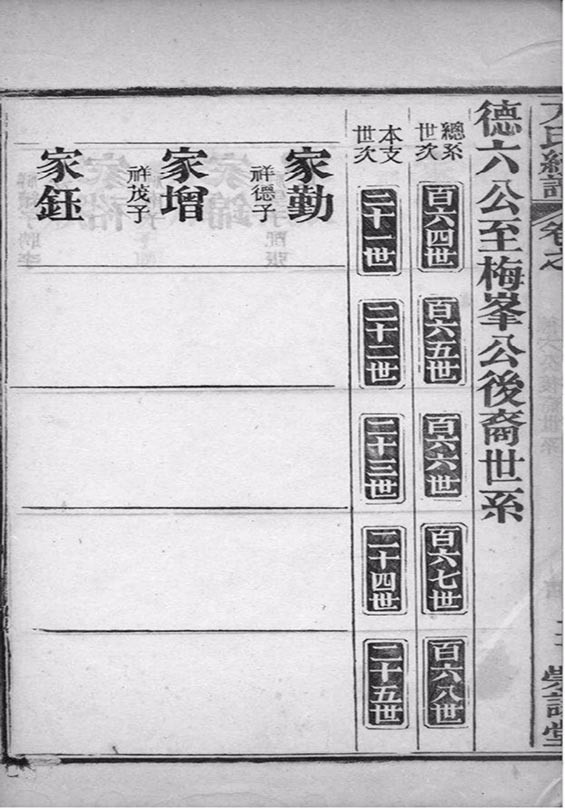 德六公至梅峯公後裔世系
總系世次
百六四世
百六五世
百六六世
百六七世
百六八世
本支世次
二十一世
二十二世
二十三世
二十四世
二十五世
家勤
祥德子
家增
祥茂子
家鈺